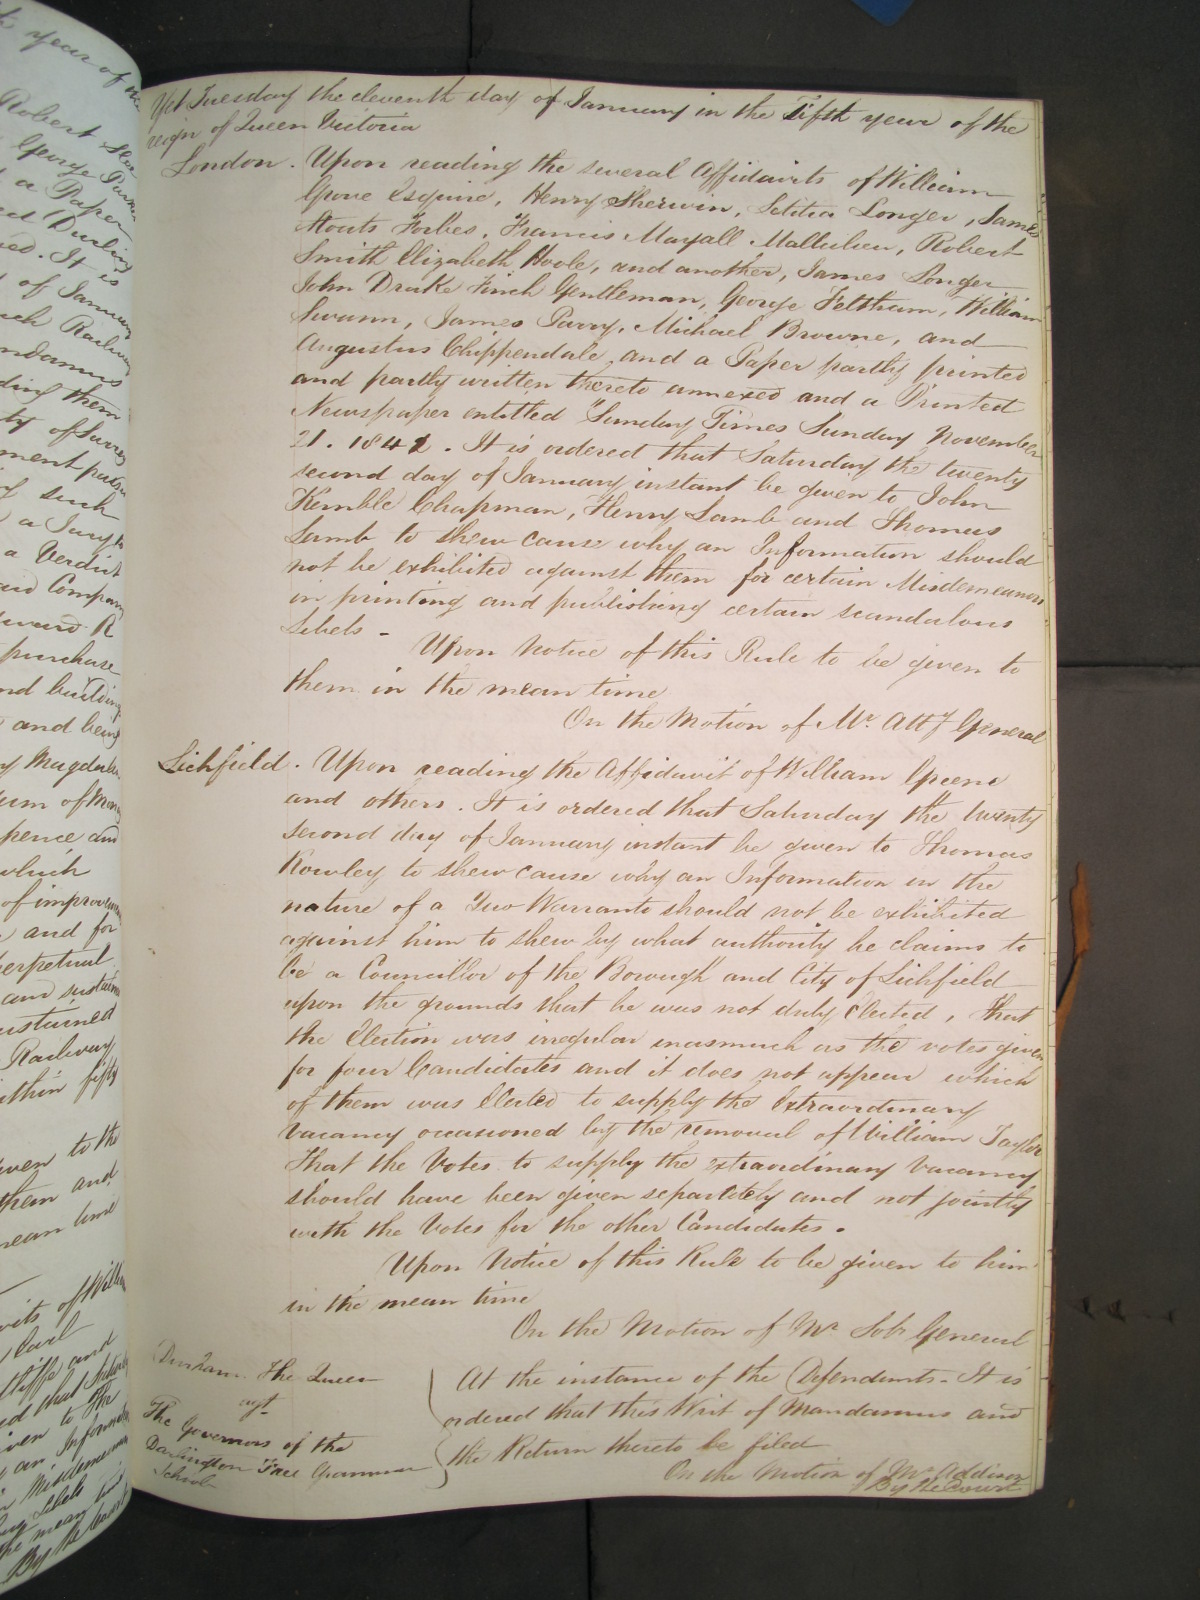 Yet Tuesday the eleventh day of January in the Fifth year of the
reign of Queen Victoria
London. Upon reading the several Affidavits of William
Gove Esquire, Henry Sherwin, Letitia Longer, James
Stouts Forbes, Francis Mayall Mallalieu, Robert
Smith Elizabeth Hoole, and another, James Longer
John Drake Finch Gentleman, George Feltham, William
Swann, James Parry, Michael Browne, and
Augustus Chippendale and a Paper partly printed
and partly written thereto annexed and a Printed
Newspaper entitled "Sunday Times Sunday November
21. 1841. It is ordered that Saturday the twenty
second day of January instant be given to John
Kemble Chapman, Henry Lamb and Thomas
Lamb to shew cause why an Information should
not be exhibited against them for certain Misdemeanors
in printing and publishing certain scandalous
Libels -
Upon Notice of this Rule to be given to
them in the mean time
On the Motion of Mr. Atty General
Lichfield. Upon reading the Affidavit of William Greene
and others. It is ordered that Saturday the twenty
second day of January instant be given to Thomas
Rowley to shew cause why an Information in the
nature of a Quo Warranto should not be exhibited
against him to shew by what authority he claims to
be a Councillor of the Borough and City of Lichfield
upon the grounds that he was not duly Elected, that
the Election was irregular inasmuch as the votes given
for four Candidates and it does not appear which
of them was Elected to supply the Extraordinary
Vacancy occasioned by the removal of William Taylor
That the Votes to supply the extraordinary Vacancy
should have been given separately and not jointly
with the Votes for the other Candidates.
Upon Notice of this Rule to be given to him
in the mean time
On the Motion of Mr Solr General
Durham The Queen
agt
The Governors of the
Darlington Free Grammar
School
At the instance of the Defendants - It is
ordered that this Writ of Mandamus and
the Return thereto be filed
On the Motion of Mr Addison
By the Court